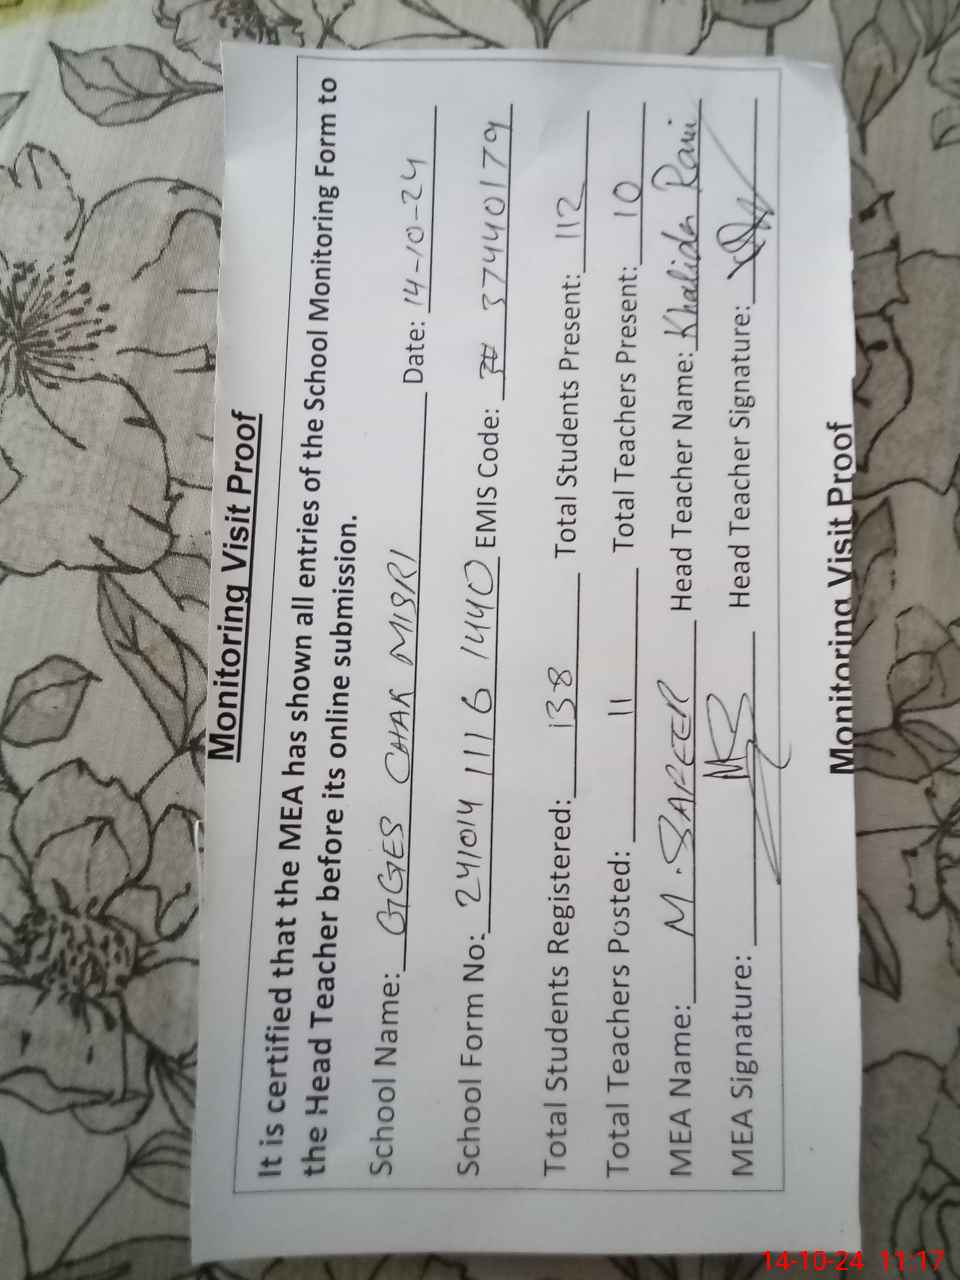 Monitoring Visit Proof
It is certified that the MEA has shown all entries of the School Monitoring Form to
the Head Teacher before its online submission.
School Name: GGES CHAK MISRI Date: 14-10-24
School Form No: 241014 111 6 1440 EMIS Code: 37440179
Total Students Registered: 138 Total Students Present: 112
Total Teachers Posted: 11 Total Teachers Present: 10
MEA Name: M. SAFEER Head Teacher Name: Khalida Rani
MEA Signature: Head Teacher Signature:
Monitoring Visit Proof
14-10-24 11:17